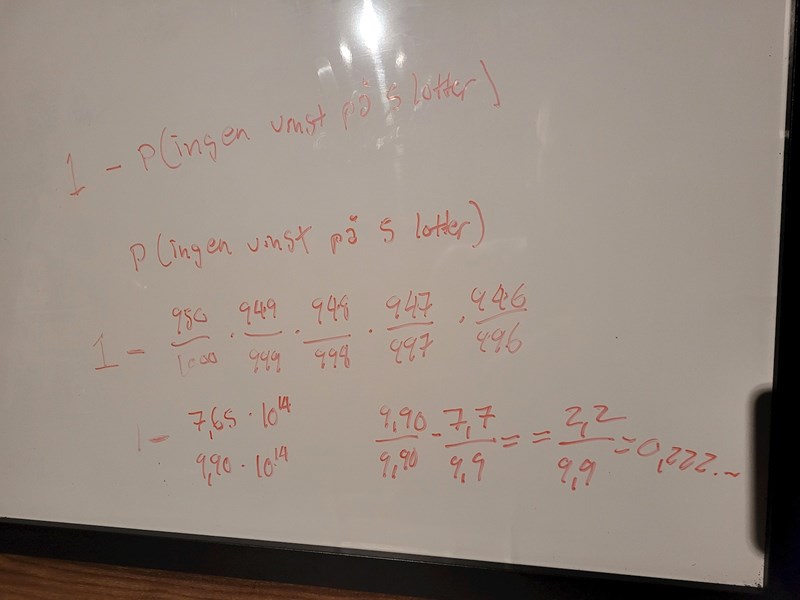 1 - P(ingen vinst på 5 lotter)
P(ingen vinst på 5 lotter)
1 - 950/1000 · 949/999 · 948/998 · 947/997 · 946/996
1 - 7,65 · 10^14 / 9,90 · 10^14    9,90/9,90 - 7,7/9,9 = = 2,2/9,9 = 0,222...